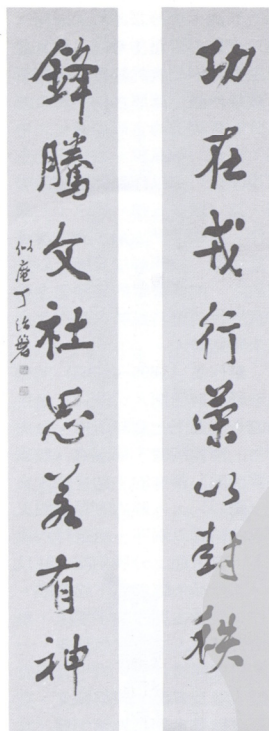 功在戎行荣以封秩
鋒騰文社思若有神
似庵丁治磐